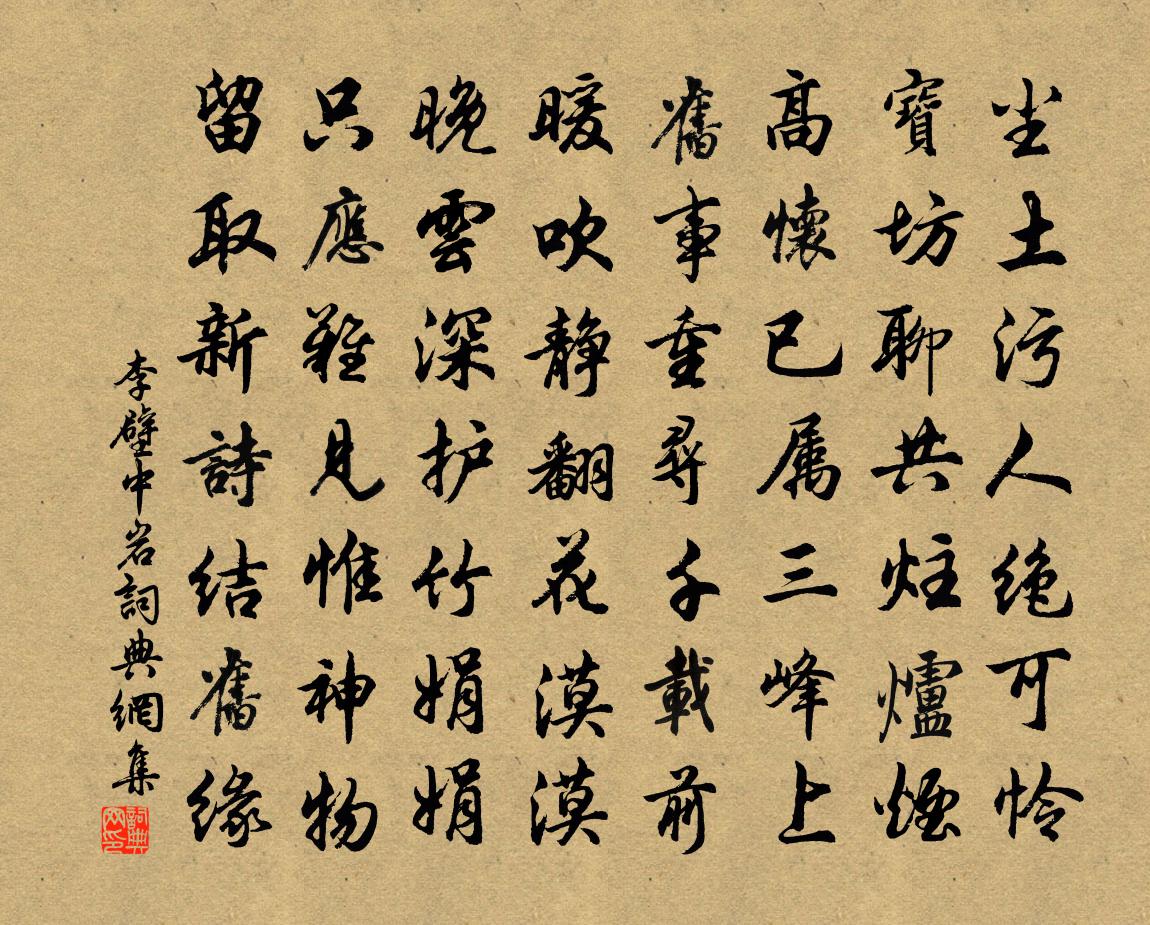 尘土污人绝可怜
寶坊聊共炷爐煙
高懷已属三峰上
舊事重尋千載前
暖吹静翻花漠漠
晚雲深护竹娟娟
只應難見惟神物
留取新詩结舊緣
李壁中岩詞典網集
詞典网印